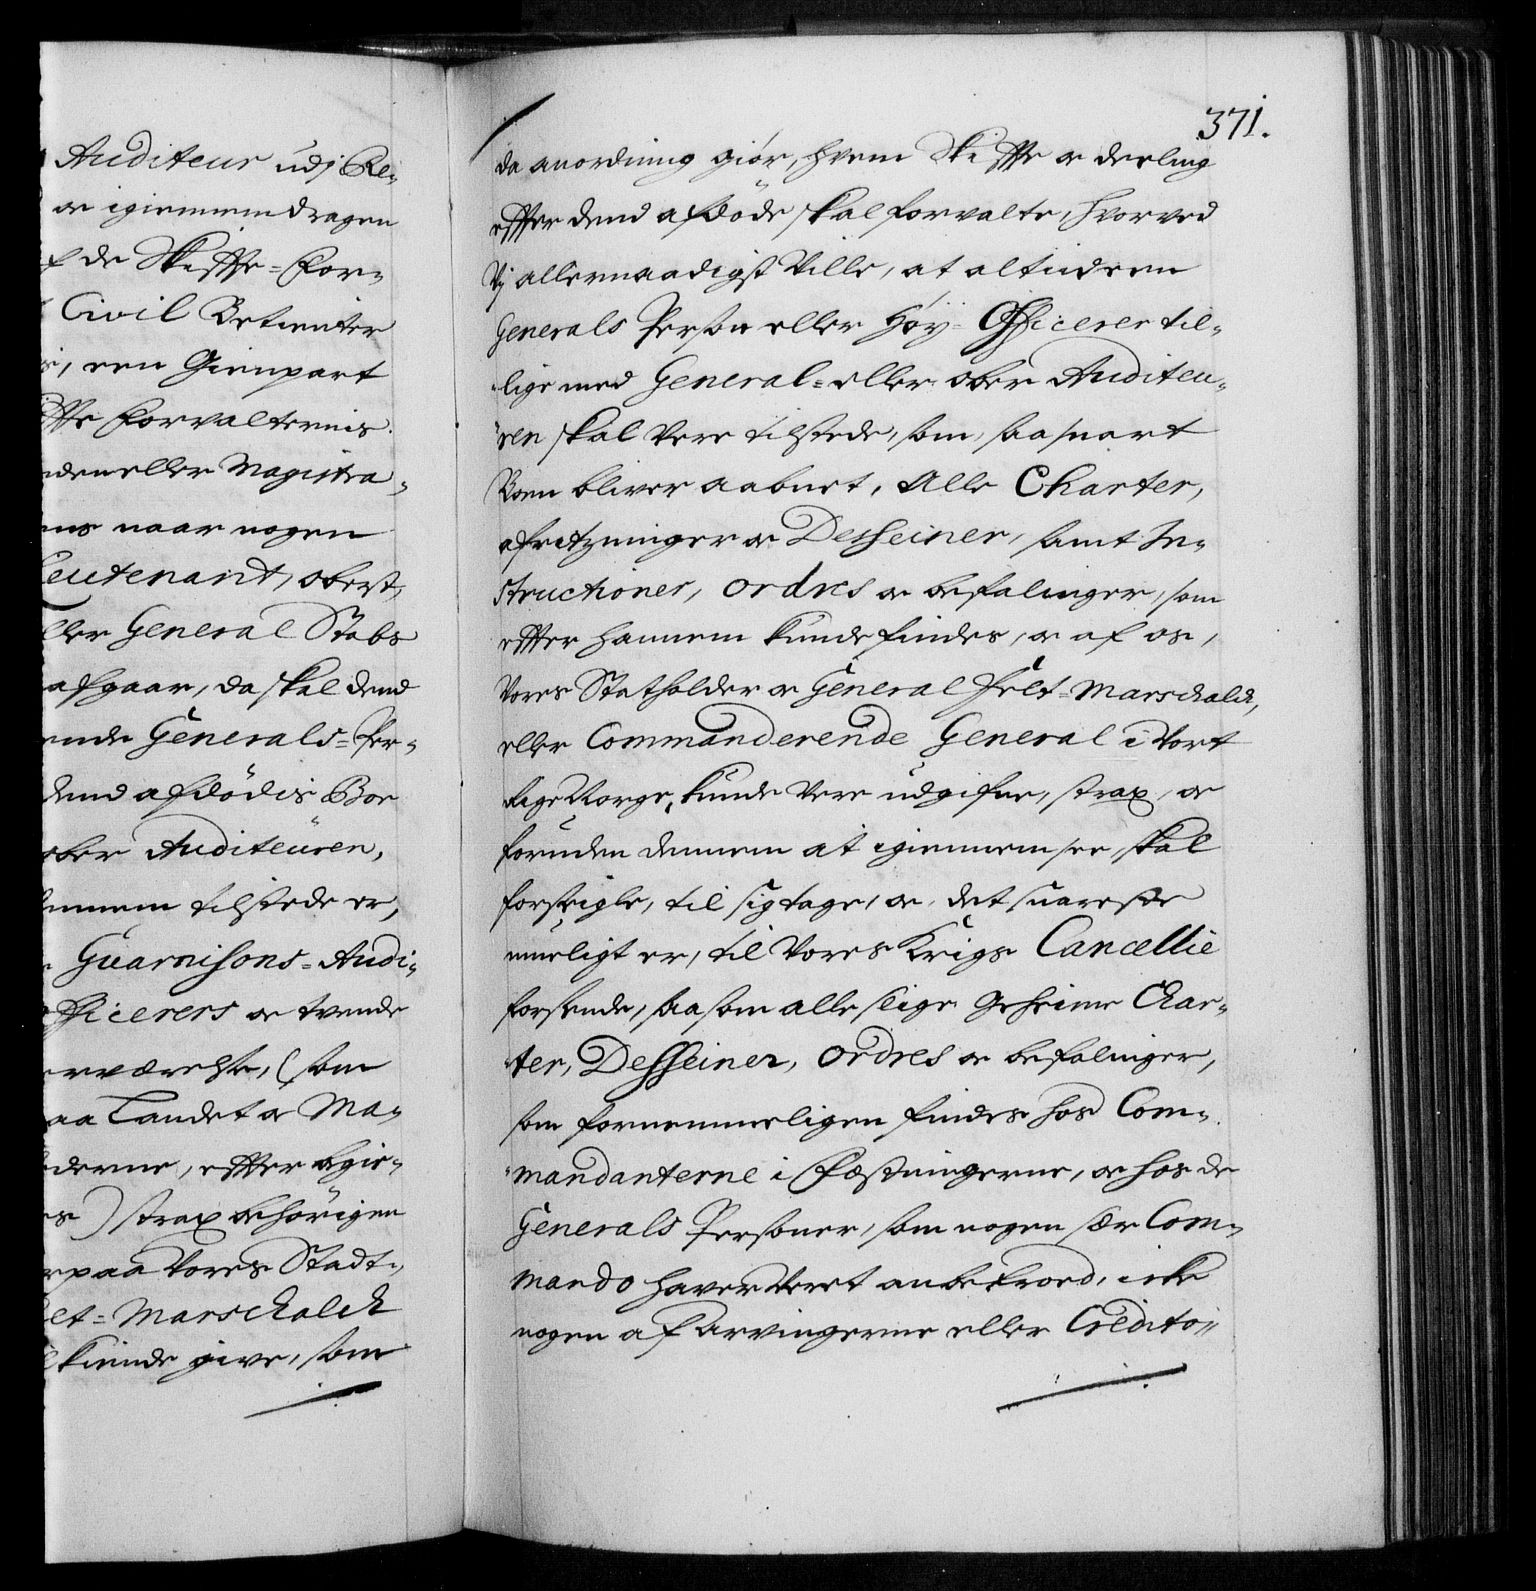 Auditeur udj Re-
og igiennemdragen
f de Skiffte-For-
Civil Betienter
, een Gienpart
ffte Forvalternis
nden eller Magistra-
ns naar nogen
Leutenant, oberst,
ller General Stabs
afgaar, da skal dend
ende Generals-Per-
dend afdödis Boe
ober Auditeüren,
ennem tilstede er,
Guarnisons-Audi-
fficerers og tvende
erværelse, (som
aa Landet og Ma-
ederne, effter begie-
es) strax behörigen
rpaa Vores Stadt-
elt-Marschalck
kunde give, som
371.
da anordning giör, hvem Skiffte og deeling
effter dend afdöde skal forvalte, hvorved
Vj allernaadigst Ville, at altiid een
Generals Person eller Höy-Officerer til-
lige med General- eller ober Auditeu-
ren skal Vere tilstede, som, saa snart
Boen bliver aabnet, Alle Charter,
afritzninger og Desseiner, samt In-
structioner, ordres og befalinger, som
effter hannem kunde findes, og af os,
Vores Statholder og General Felt-Marschalck,
eller Commanderende General i Vort
Rige Norge, kunde Vere udgifne, strax, og
foruden dennem at igiennemsee, skal
forseigle, til sig tage, og det snareste
mueligt er, til Vores Krigs Cancellie
forsende, saasom alle slige geheime Char-
ter, Desseiner, ordres og befalinger,
som fornemmeligen findes hos Com-
mandanterne i Fæstningerne, og hos de
Generals Personer, som nogen sær Com-
mando haver Veret anbetroed, icke
nogen af Arvingerne eller Credito-